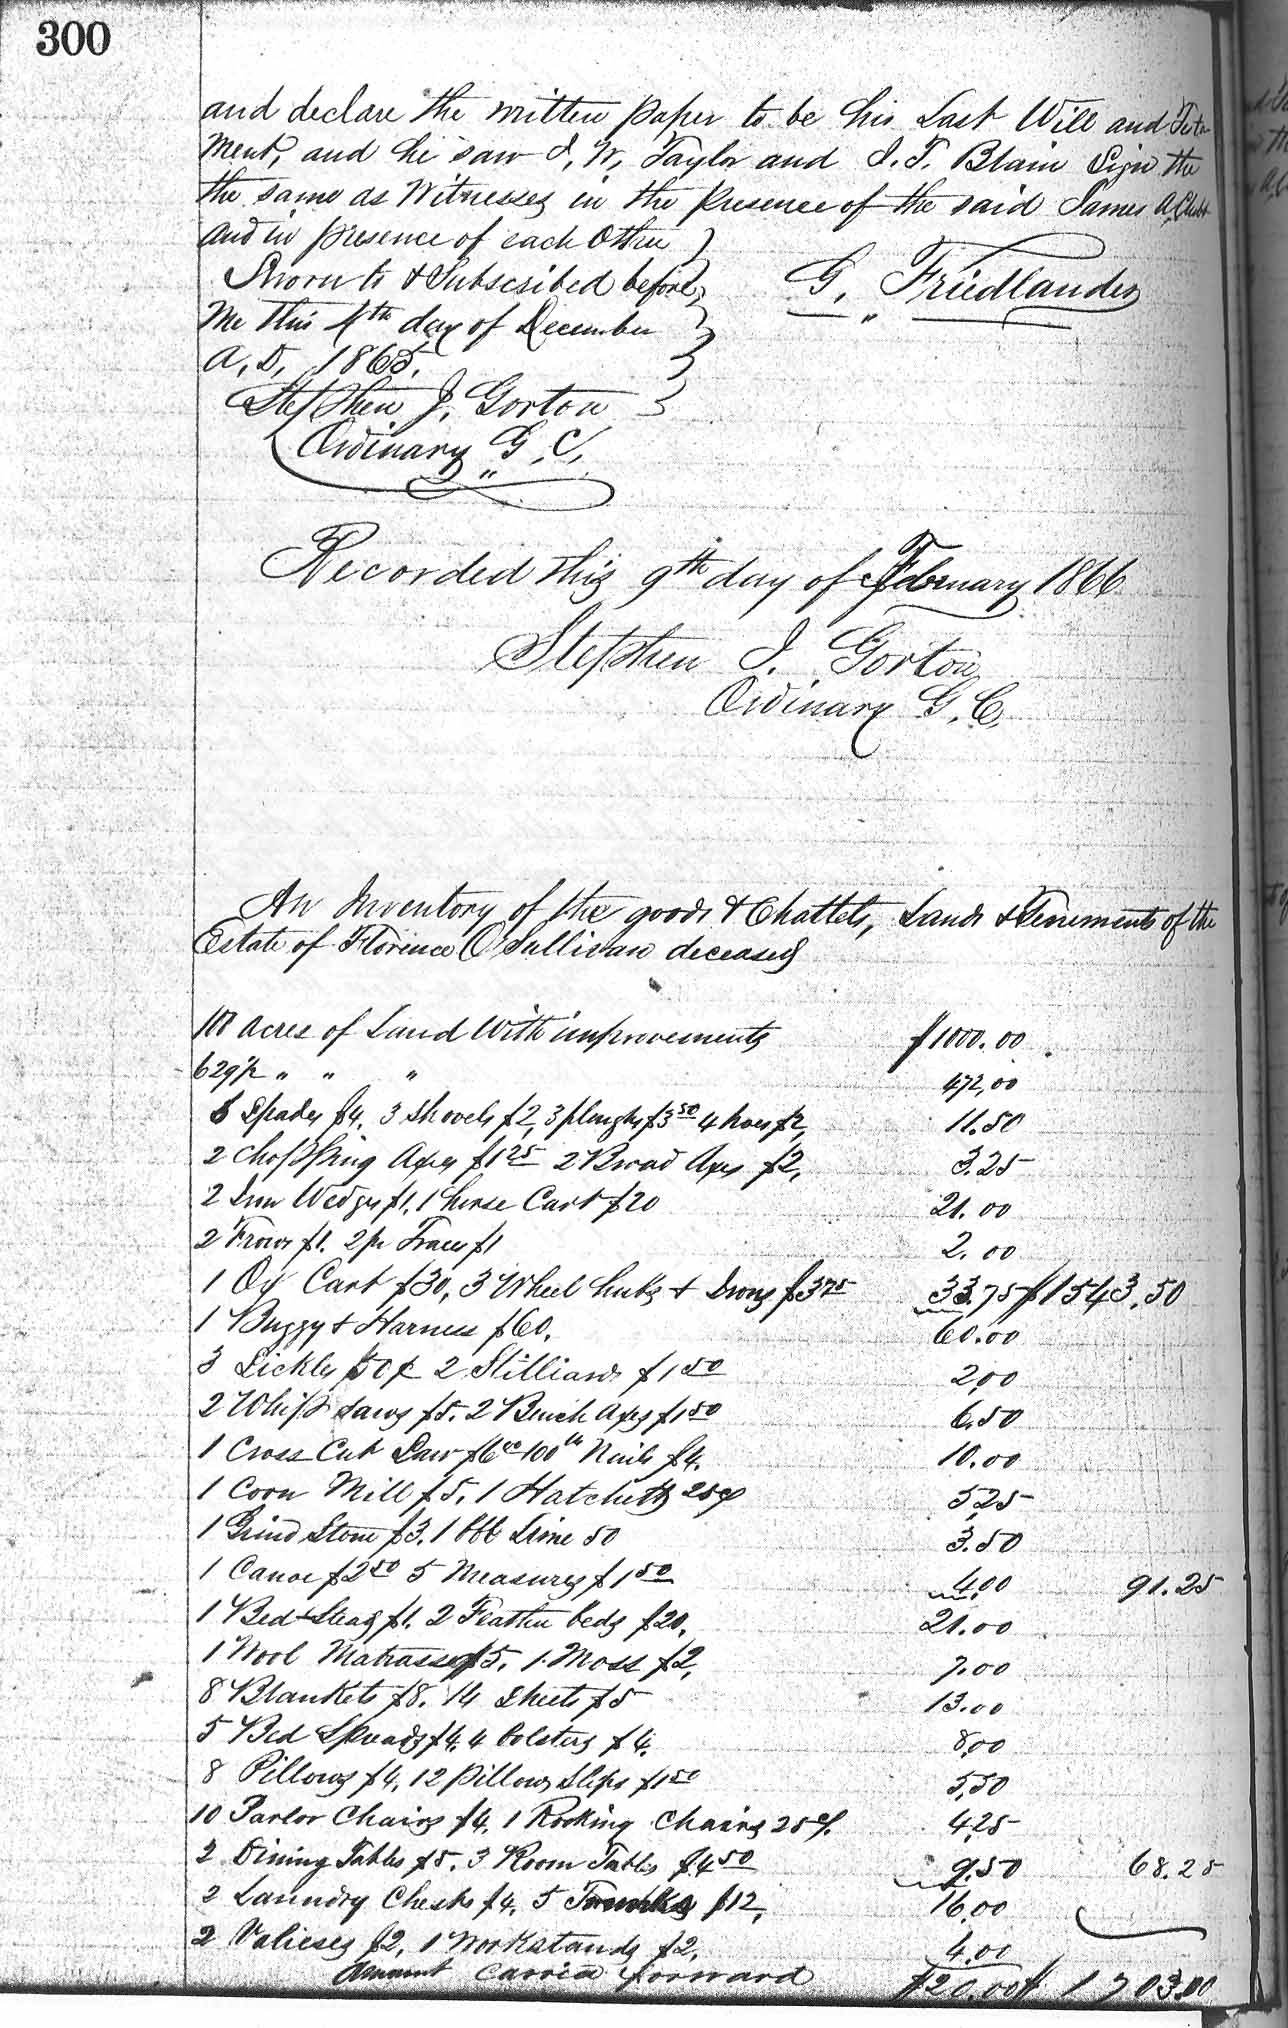 300
and declare the written paper to be his Last Will and Testa
ment, and he saw J. W. Taylor and J. F. Blain Sign the
the same as Witnesses in the presence of the said James A.
and in presence of each Other
Sworn to & Subscribed before
me this 4th day of December
A. D. 1865.
G. Friedlander
Stephen J. Gorton
Ordinary G. C.
Recorded this 9th day of February 1866
Stephen J. Gorton
Ordinary G. C.
An Inventory of the goods & Chattels, Lands & Tenements of the
Estate of Florence O'Sullivan deceased
acres of Land With improvements $1000.00
629½ " " " 472,00
6 Spades $4. 3 Shovels $2, 3 ploughs $3 50 4 hoes $2, 11.50
2 Chopping Axes $1 25 2 Broad Axes $2, 3.25
2 Iron Wedges $1. 1 horse Cart $20 21.00
2 Frows $1. 2 pr Traces $1 2.00
1 Ox Cart $30, 3 Wheel hubs & Irons $3 75 33.75 $1543.50
1 Buggy & Harness $60. 60.00
3 Sickles 50¢ 2 Stilliards $1 50 2,00
2 Whip Saws $5. 2 Bench Axes $1 50 6,50
1 Cross Cut Saw $6 00 100 lb Nails $4. 10.00
1 Corn Mill $5. 1 Hatchetts 25¢ 5,25
1 Grind Stone $3. 1 bbl Lime 50 3.50
1 Canoe $2 50 5 Measures $1 50 4,00 91.25
1 Bed Stead $1. 2 Feather beds $20. 21.00
1 Wool Matrasses $5. 1 Moss $2, 7.00
8 Blankets $8. 14 Sheets $5 13.00
5 Bed Spreads $4. 4 bolsters $4. 8,00
8 Pillows $4. 12 pillow Slips $1 50 5,50
10 Parlor Chairs $4. 1 Rocking Chairs 25¢. 4,25
2 Dining Tables $5. 3 Room Tables $4 50 9.50 68.25
2 Laundry Chests $4. 5 Trunks $12, 16,00
2 Valieses $2, 1 Workstands $2, 4.00
Amount Carried forward $20.00 $1703.00